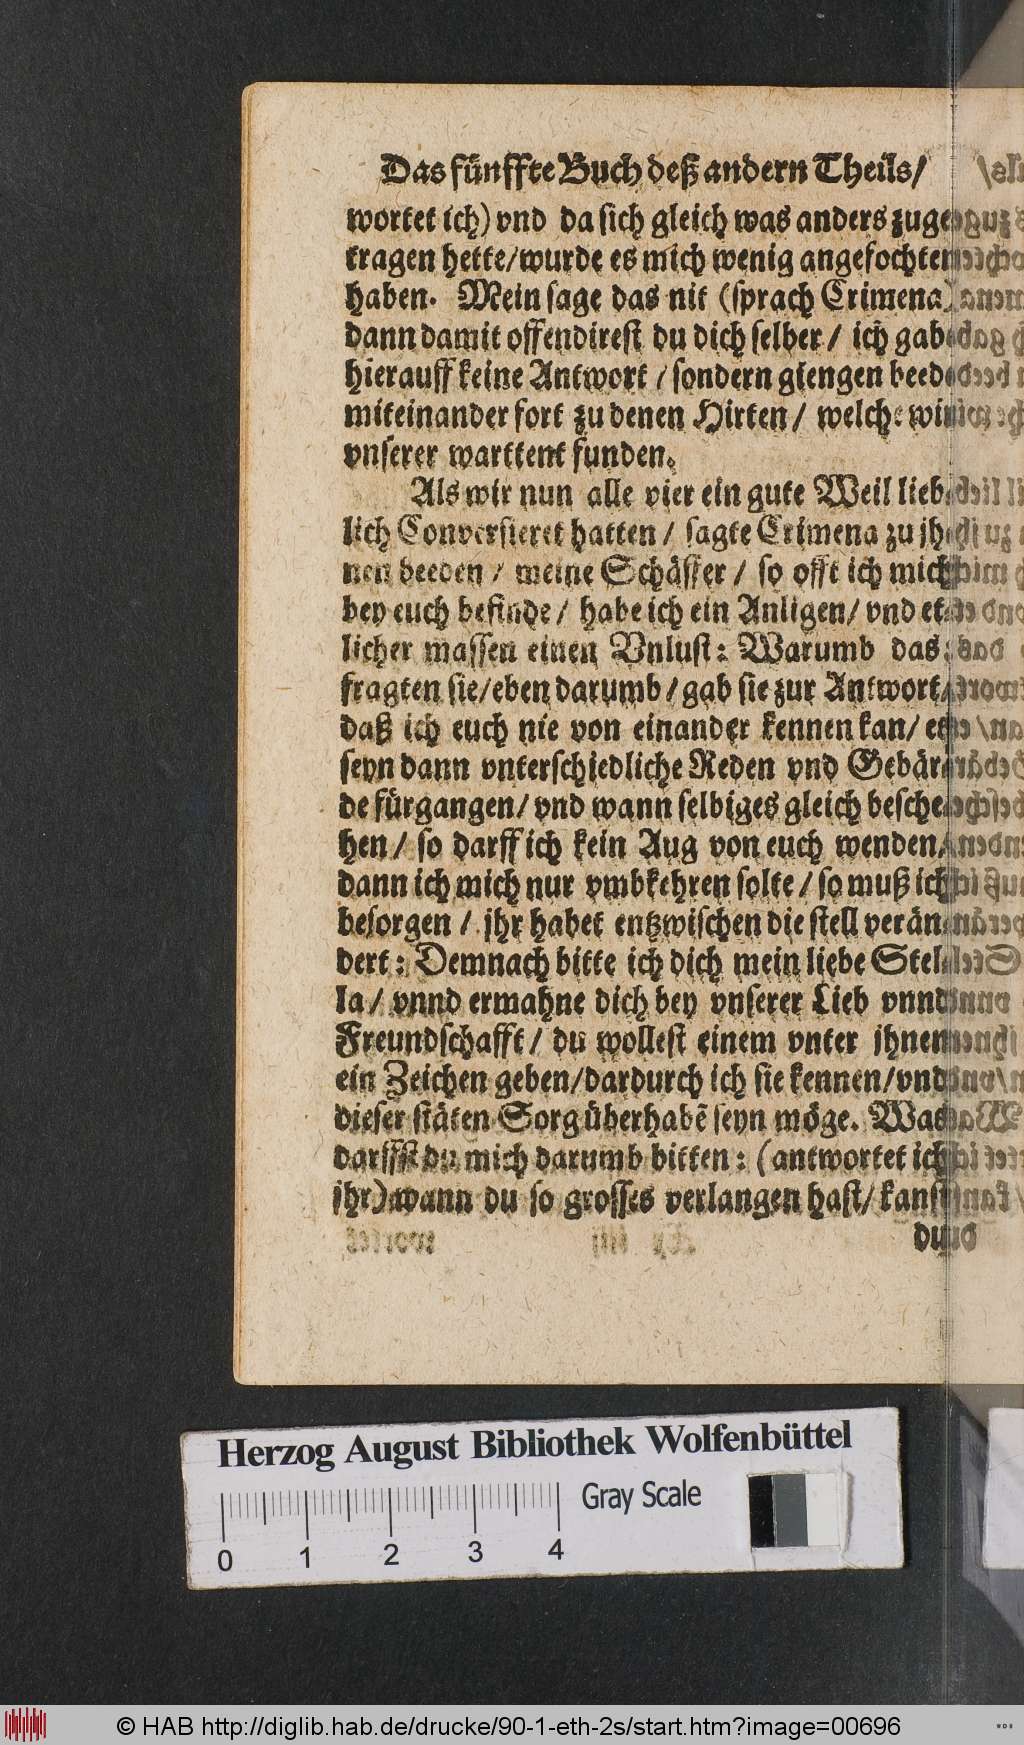 Das fünffte Buch deß andern Theils/
wortet ich) vnd da sich gleich was anders zuge-
tragen hette/wurde es mich wenig angefochten
haben. Mein sage das nit (sprach Crimena)
dann damit offendirest du dich selber/ ich gab
hierauff keine Antwort/ sondern giengen beede
miteinander fort zu denen Hirten/ welche wir
vnserer warttent funden.
Als wir nun alle vier ein gute Weil lieb-
lich Conversieret hatten/ sagte Crimena zu jh-
nen beeden/ meine Schäffer/ so offt ich mich
bey euch befinde/ habe ich ein Anligen/ vnd et-
licher massen einen Vnlust: Warumb das
fragten sie/eben darumb/gab sie zur Antwort/
daß ich euch nie von einander kennen kan/ es
seyn dann vnterschiedliche Reden vnd Gebär-
de fürgangen/ vnd wann selbiges gleich besche-
hen/ so darff ich kein Aug von euch wenden/
dann ich mich nur vmbkehren solte/ so muß ich
besorgen/ jhr habet entzwischen die stell verän-
dert: Demnach bitte ich dich mein liebe Stel-
la/ vnnd ermahne dich bey vnserer Lieb vnnd
Freundschafft/ du wollest einem vnter jhnen
ein Zeichen geben/dardurch ich sie kennen/vnd
dieser stäten Sorg überhabẽ seyn möge. Was
darffst du mich darumb bitten: (antwortet ich
jhr) wann du so grosses verlangen hast/ kanst
du
Herzog August Bibliothek Wolfenbüttel
Gray Scale
0 1 2 3 4
© HAB http://diglib.hab.de/drucke/90-1-eth-2s/start.htm?image=00696